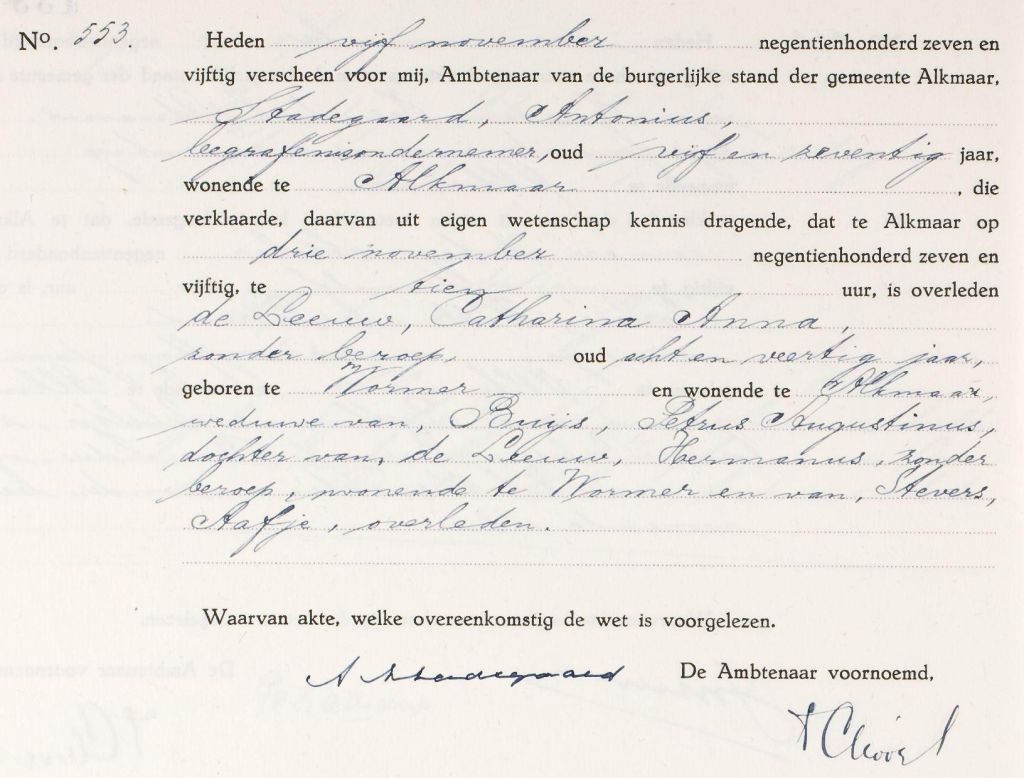 No. 553 Heden vijf november negentienhonderd zeven en
vijftig verscheen voor mij, Ambtenaar van de burgerlijke stand der gemeente Alkmaar,
Stadegaard, Antonius,
begrafenisondernemer, oud vijf en zeventig jaar,
wonende te Alkmaar, die
verklaarde, daarvan uit eigen wetenschap kennis dragende, dat te Alkmaar op
drie november negentienhonderd zeven en
vijftig, te tien uur, is overleden
de Leeuw, Catharina Anna,
zonder beroep, oud acht en veertig jaar,
geboren te Wormer en wonende te Alkmaar,
weduwe van, Buijs, Petrus Augustinus,
dochter van, de Leeuw, Hermanus, zonder
beroep, wonende te Wormer en van, Stevers,
Aafje, overleden.
Waarvan akte, welke overeenkomstig de wet is voorgelezen.
A Stadegaard De Ambtenaar voornoemd,